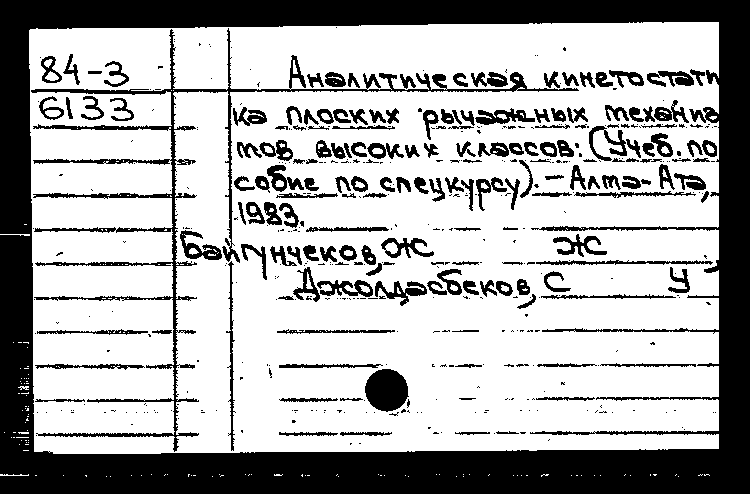 84-3
Аналитическая кинетостати
6133
ка плоских рычажных механиз
мов высоких классов: (Учеб. по
собие по спецкурсу). - Алма-Ата,
1983.
Байгунчеков, Ж Ж
Джолдасбеков, С У